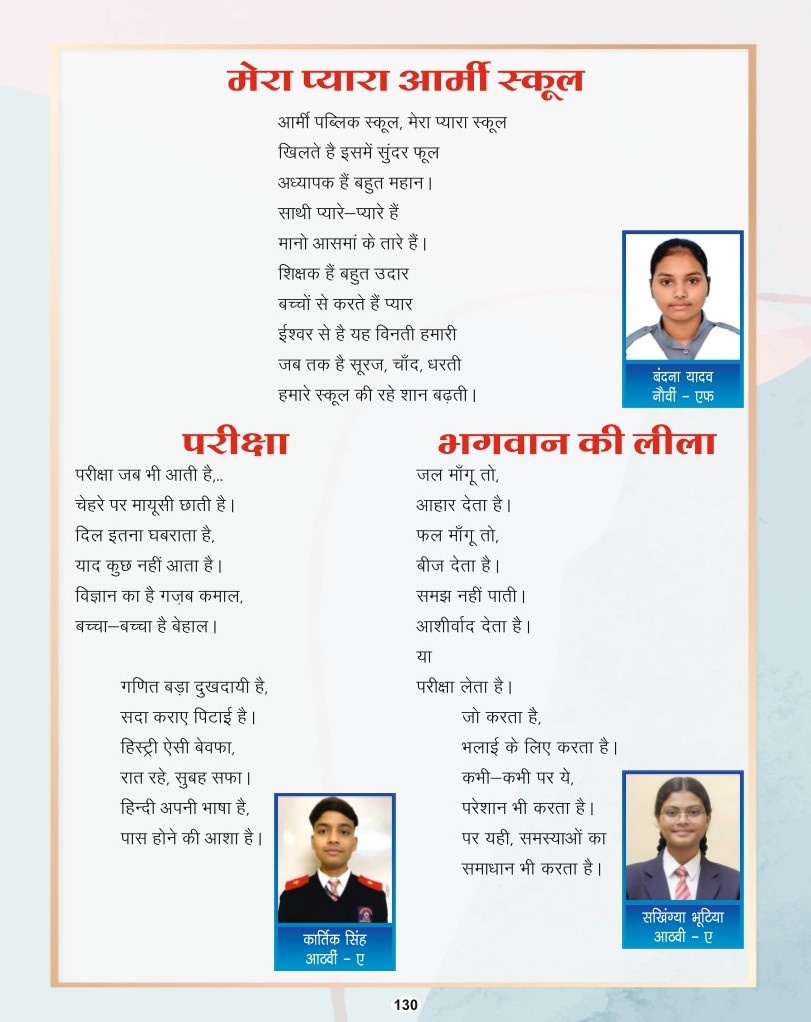 मेरा प्यारा आर्मी स्कूल
आर्मी पब्लिक स्कूल, मेरा प्यारा स्कूल
खिलते है इसमें सुंदर फूल
अध्यापक हैं बहुत महान।
साथी प्यारे–प्यारे हैं
मानो आसमां के तारे हैं।
शिक्षक हैं बहुत उदार
बच्चों से करते हैं प्यार
ईश्वर से है यह विनती हमारी
जब तक है सूरज, चाँद, धरती
हमारे स्कूल की रहे शान बढ़ती।
बंदना यादव
नौवीं - एफ
परीक्षा
परीक्षा जब भी आती है,..
चेहरे पर मायूसी छाती है।
दिल इतना घबराता है,
याद कुछ नहीं आता है।
विज्ञान का है गज़ब कमाल,
बच्चा–बच्चा है बेहाल।
गणित बड़ा दुखदायी है,
सदा कराए पिटाई है।
हिस्ट्री ऐसी बेवफा,
रात रहे, सुबह सफा।
हिन्दी अपनी भाषा है,
पास होने की आशा है।
कार्तिक सिंह
आठवीं - ए
भगवान की लीला
जल माँगू तो,
आहार देता है।
फल माँगू तो,
बीज देता है।
समझ नहीं पाती।
आशीर्वाद देता है।
या
परीक्षा लेता है।
जो करता है,
भलाई के लिए करता है।
कभी–कभी पर ये,
परेशान भी करता है।
पर यही, समस्याओं का
समाधान भी करता है।
सखिंग्या भूटिया
आठवी - ए
130